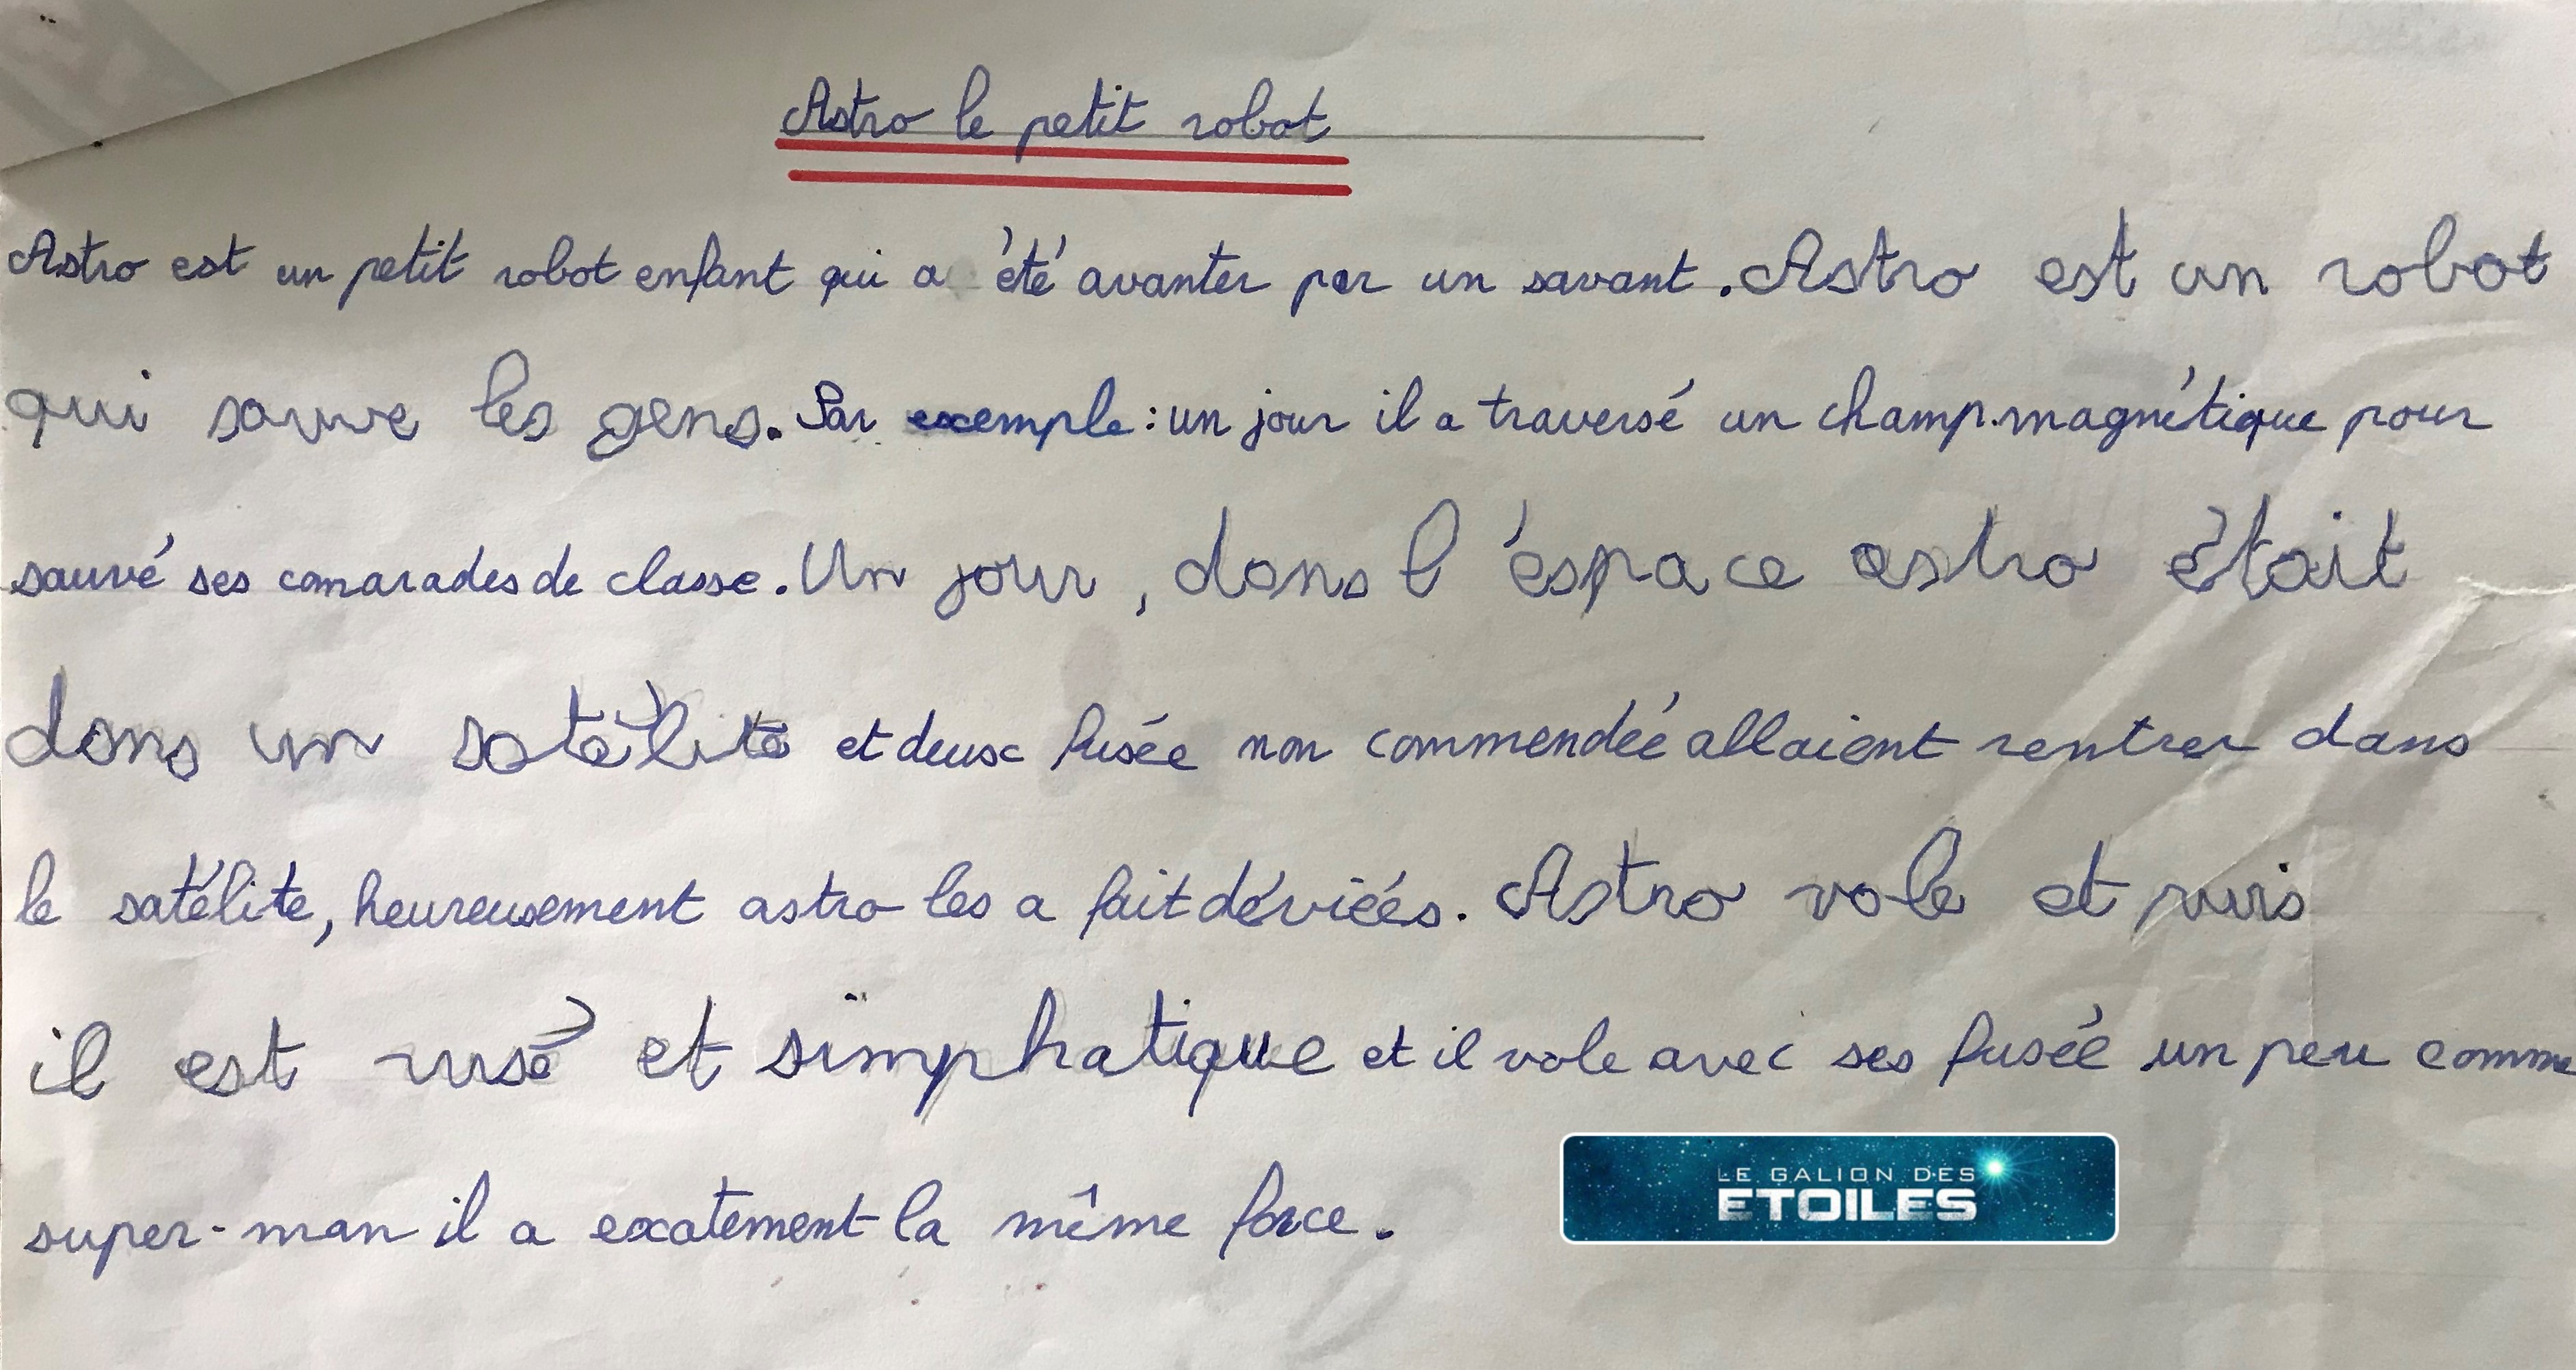 Astro le petit robot
Astro est un petit robot enfant qui a été avanter par un savant. Astro est un robot
qui sauve les gens. Par exemple : un jour il a traversé un champ.magnétique pour
sauvé ses camarades de classe. Un jour, dans l'éspace astro était
dans un satélite et deux fusée non commendéé allaient rentrer dans
le satélite, heureusement astro les a fait déviéés. Astro vole et puis
il est rusé et simphatique et il vole avec ses fusée un peu comme
super-man il a exatement la même force.
LE GALION DES
ETOILES